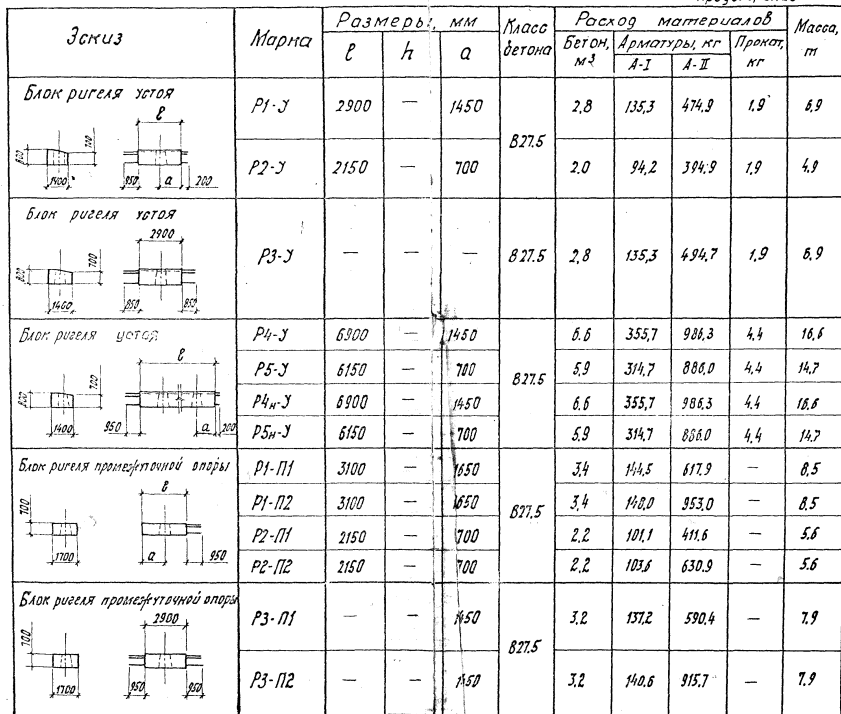 Эскиз Марка Размеры, мм Класс бетона Расход материалов Масса, т
l h a Бетон, м3 Арматуры, кг Прокат, кг
А-I А-II
Блок ригеля устоя
l
800 700 1400 950 a 200
Р1-У 2900 — 1450 В27.5 2,8 135,3 474,9 1,9 6,9
Р2-У 2150 — 700 2.0 94,2 394,9 1,9 4,9
Блок ригеля устоя
2900
800 700 1400 850 850
Р3-У — — — В27.5 2,8 135,3 494,7 1,9 6,9
Блок ригеля устоя
l
800 700 1400 950 a 200
Р4-У 6900 — 1450 В27.5 6.6 355,7 986,3 4,4 16,6
Р5-У 6150 — 700 5,9 314,7 886,0 4,4 14,7
Р4н-У 6900 — 1450 6.6 355,7 986,3 4,4 16,6
Р5н-У 6150 — 700 5,9 314,7 886.0 4,4 14,7
Блок ригеля промежуточной опоры
l
700 1700 a 950
Р1-П1 3100 — 1650 В27,5 3,4 144,5 617,9 — 8,5
Р1-П2 3100 — 1650 3,4 148,0 953,0 — 8,5
Р2-П1 2150 — 700 2,2 101,1 411,6 — 5,6
Р2-П2 2150 — 700 2,2 103,6 630,9 — 5.6
Блок ригеля промежуточной опоры
2900
700 1700 950 950
Р3-П1 — — 1450 В27.5 3,2 137,2 590,4 — 7,9
Р3-П2 — — 1450 3,2 140,6 915,7 — 7,9